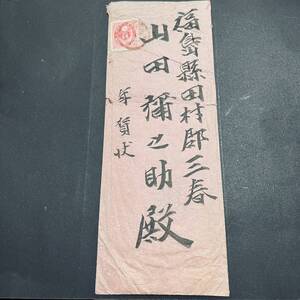 福島縣田村郡三春
山田彌之助殿
年賀状